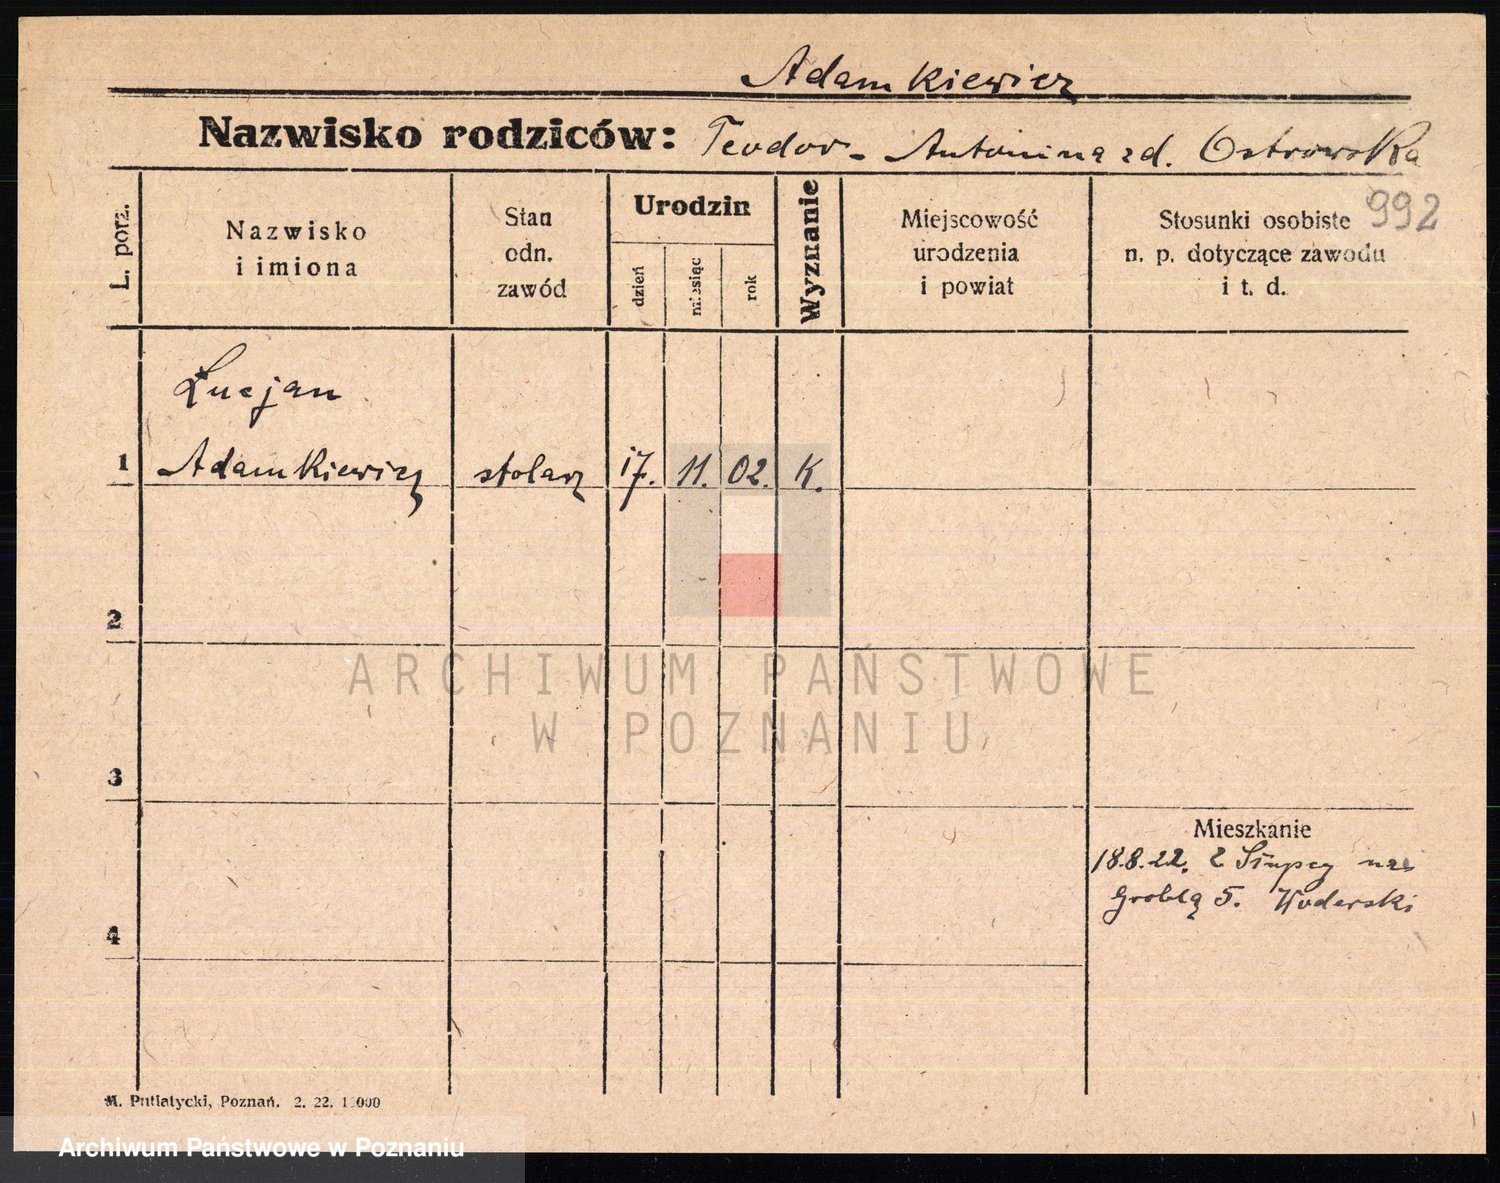 Adamkiewicz
Nazwisko rodziców: Teodor - Antonina zd. Ostrowska
992
L. porz.
Nazwisko
i imiona
Stan
odn.
zawód
Urodzin
dzień
miesiąc
rok
Wyznanie
Miejscowość
urodzenia
i powiat
Stosunki osobiste
n. p. dotyczące zawodu
i t. d.
Lucjan
1 Adamkiewicz stolarz 17. 11. 02. K.
2
ARCHIWUM PAŃSTWOWE
W POZNANIU
3
Mieszkanie
18.8.22. z Słupcy
Groblą 5. Woderski
4
M. Putiatycki, Poznań. 2. 22.
Archiwum Państwowe w Poznaniu